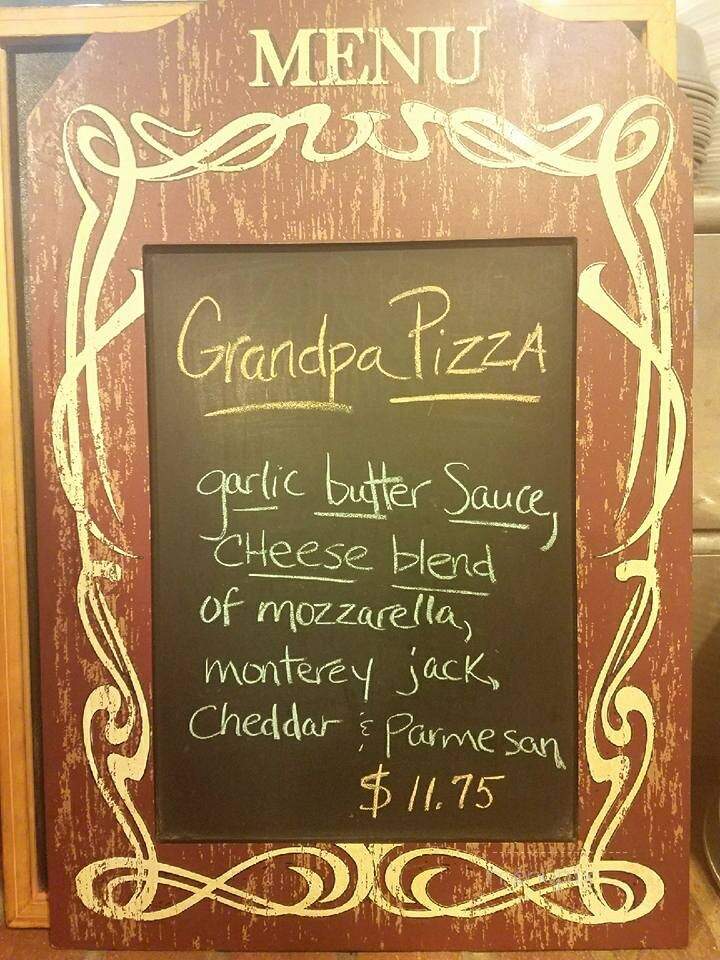 MENU
Grandpa PIZZA
garlic butter Sauce,
CHeese blend
of mozzarella,
monterey jack,
Cheddar & Parmesan
$11.75